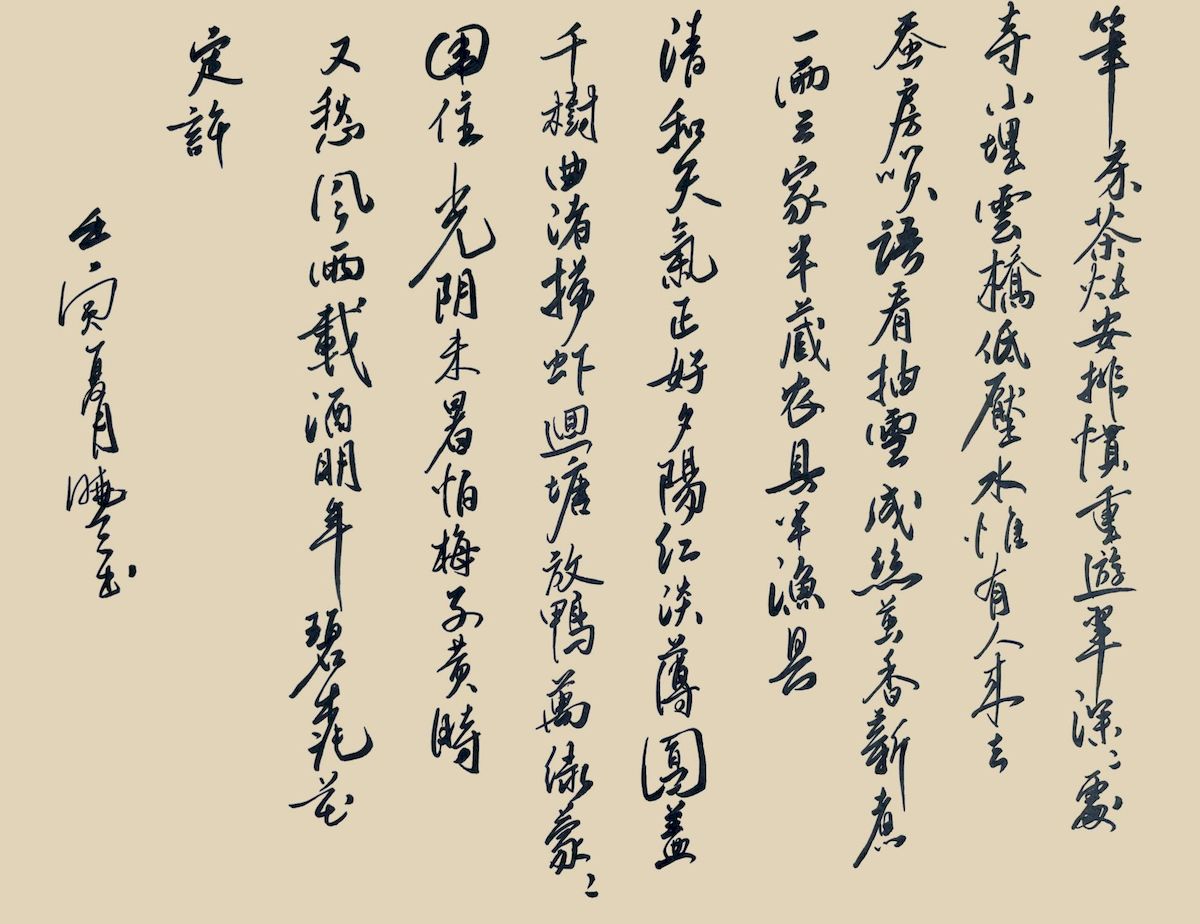 筆床茶灶安排慣重遊翠深〻處
寺小埋雲橋低壓水惟有人来去
蚕房咲語看抽雪成絲茧香新煮
一兩三家半藏农具半漁具
清和天氣正好夕陽红淡薄圓蓋
千樹曲渚撈虾迴塘放鴨萬绿蒙〻
圍住光阴未暑怕梅子黄時
又愁风雨載酒明年碧桃花
定許
壬寅夏月曉云书